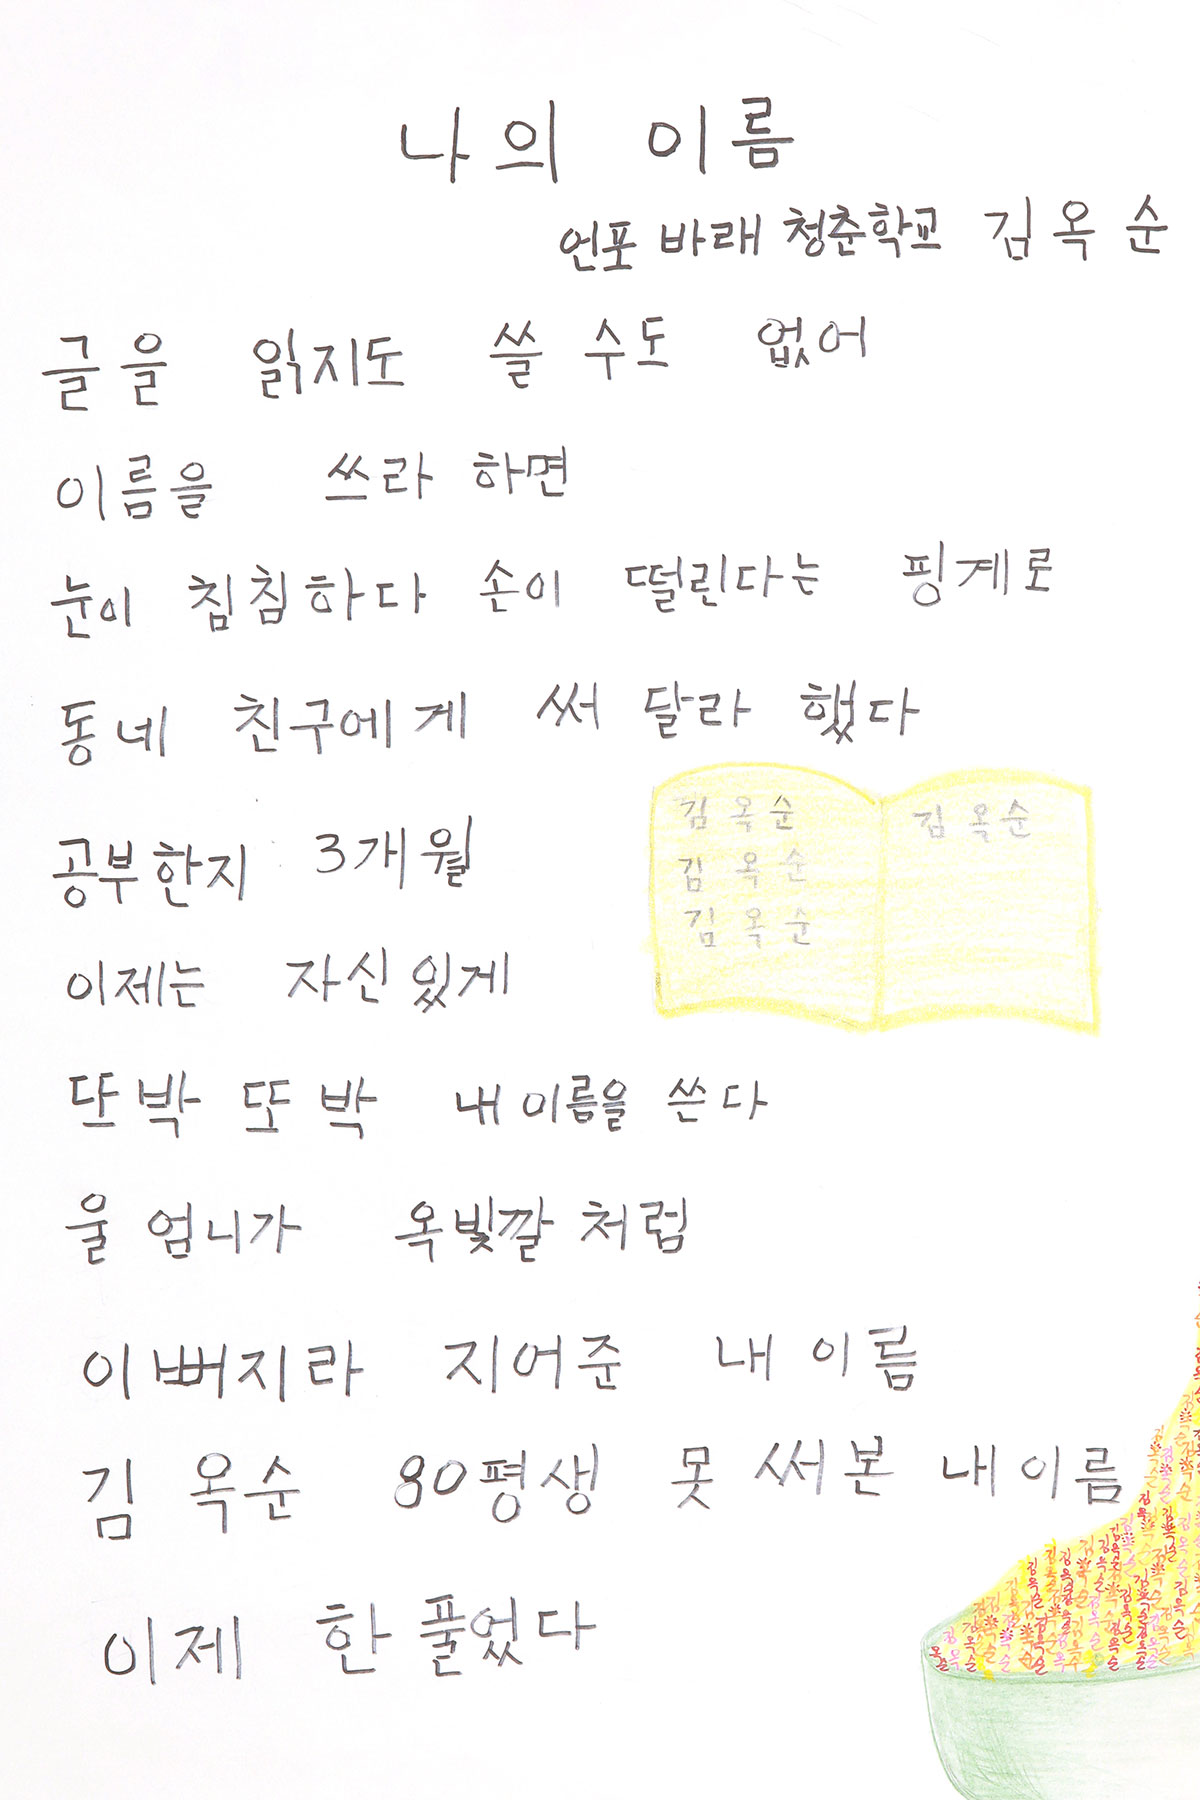 나의 이름
언포 바래 청춘학교 김옥순
글을 읽지도 쓸 수도 없어
이름을 쓰라 하면
눈이 침침하다 손이 떨린다는 핑계로
동네 친구에게 써 달라 했다
공부한지 3개월
이제는 자신있게
또박 또박 내 이름을 쓴다
울 엄니가 옥빛깔 처럼
이뻐지라 지어준 내 이름
김 옥순 80평생 못 써본 내 이름
이제 한 풀었다
김 옥 순
김 옥 순
김 옥 순
김 옥 순